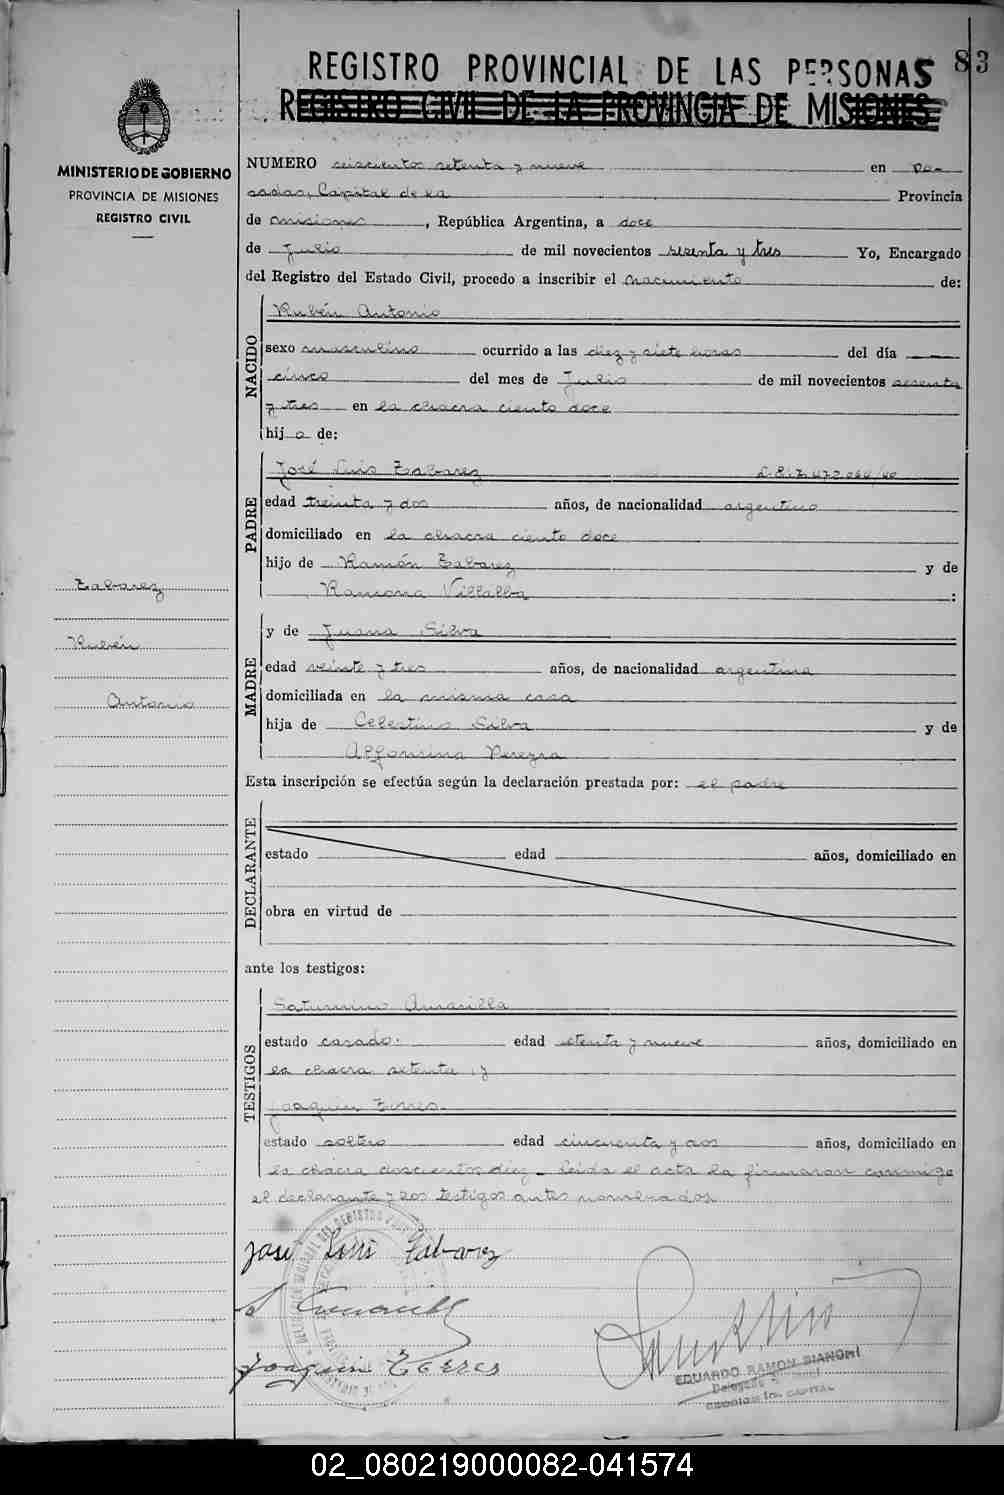 83
REGISTRO PROVINCIAL DE LAS PERSONAS
REGISTRO CIVIL DE LA PROVINCIA DE MISIONES
MINISTERIO DE GOBIERNO
PROVINCIA DE MISIONES
REGISTRO CIVIL
NUMERO seiscientos setenta y nueve en Po-
sadas, Capital de la Provincia
de Misiones, República Argentina, a doce
de Julio de mil novecientos sesenta y tres Yo, Encargado
del Registro del Estado Civil, procedo a inscribir el nacimiento de:
NACIDO
Rubén Antonio
sexo masculino ocurrido a las diez y siete horas del día
cinco del mes de Julio de mil novecientos sesenta
y tres en la chacra ciento doce
hijo de:
PADRE
José Luis Tabarez
edad treinta y dos años, de nacionalidad argentino
domiciliado en la chacra ciento doce
hijo de Ramón Tabarez y de
Ramona Villalba :
Tabarez
Rubén
Antonio
MADRE
y de Juana Silva
edad veinte y tres años, de nacionalidad argentina
domiciliada en la misma casa
hija de Celestino Silva y de
Alfonsina Pereyra
Esta inscripción se efectúa según la declaración prestada por: el padre
DECLARANTE
estado edad años, domiciliado en
obra en virtud de
ante los testigos:
TESTIGOS
Saturnino Amarilla
estado casado. edad setenta y nueve años, domiciliado en
la chacra setenta y
Joaquin Torres.
estado soltero edad cincuenta y dos años, domiciliado en
la chacra doscientos diez_ Leida el acta la firmaron conmigo
el declarante y los testigos antes nombrados
Jose Luis Tabarez
S Amarilla
Joaquin Torres
EDUARDO RAMON BIANCHI
Delegado
CAPITAL
02_080219000082-041574